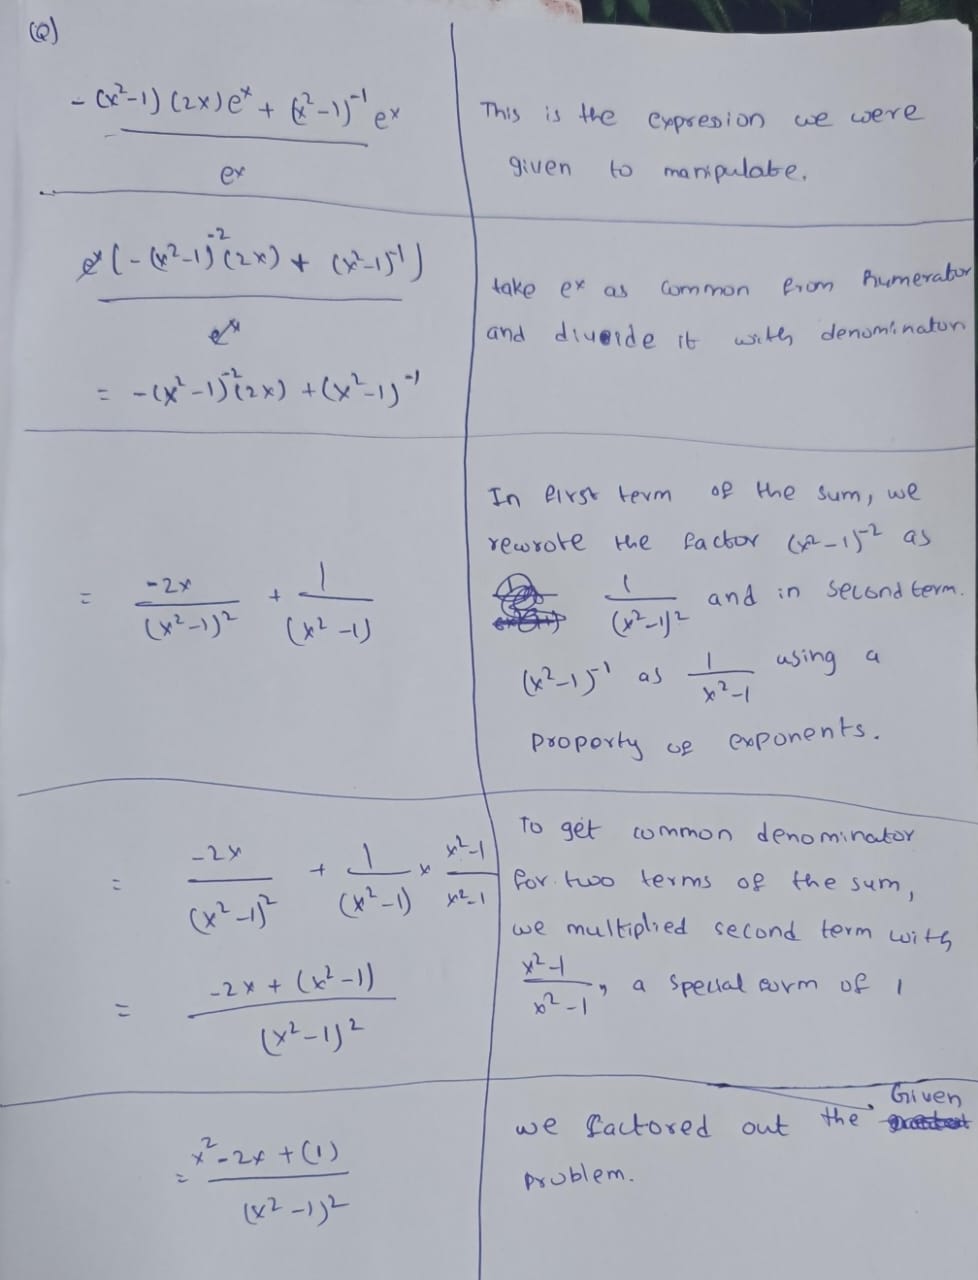 (Q)
- (x²-1) (2x) eˣ + (x²-1)⁻¹ eˣ
eˣ
This is the expresion we were
given to manipulate.
eˣ (- (x²-1)⁻² (2x) + (x²-1)⁻¹)
eˣ
= -(x²-1)⁻² (2x) + (x²-1)⁻¹
take eˣ as common from numerator
and diveide it with denominator
= -2x/(x²-1)² + 1/(x²-1)
In first term of the sum, we
rewrote the factor (x²-1)⁻² as
1/(x²-1)² and in second term.
(x²-1)⁻¹ as 1/x²-1 using a
property of exponents.
= -2x/(x²-1)² + 1/(x²-1) × x²-1/x²-1
= -2x + (x²-1)/(x²-1)²
To get common denominator
for two terms of the sum,
we multiplied second term with
x²-1/x²-1, a special form of 1
= x²-2x+(1)/(x²-1)²
we factored out the Given
problem.